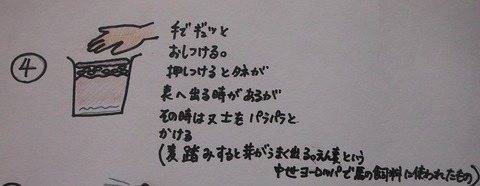 ④
手でギュッと
おしつける。
押しつけるとタネが
表へ出る時があるが
その時は又土をパラパラと
かける
(麦踏みすると芽がうまく出る。えん麦という
中世ヨーロッパで馬の飼料に使われたもの)